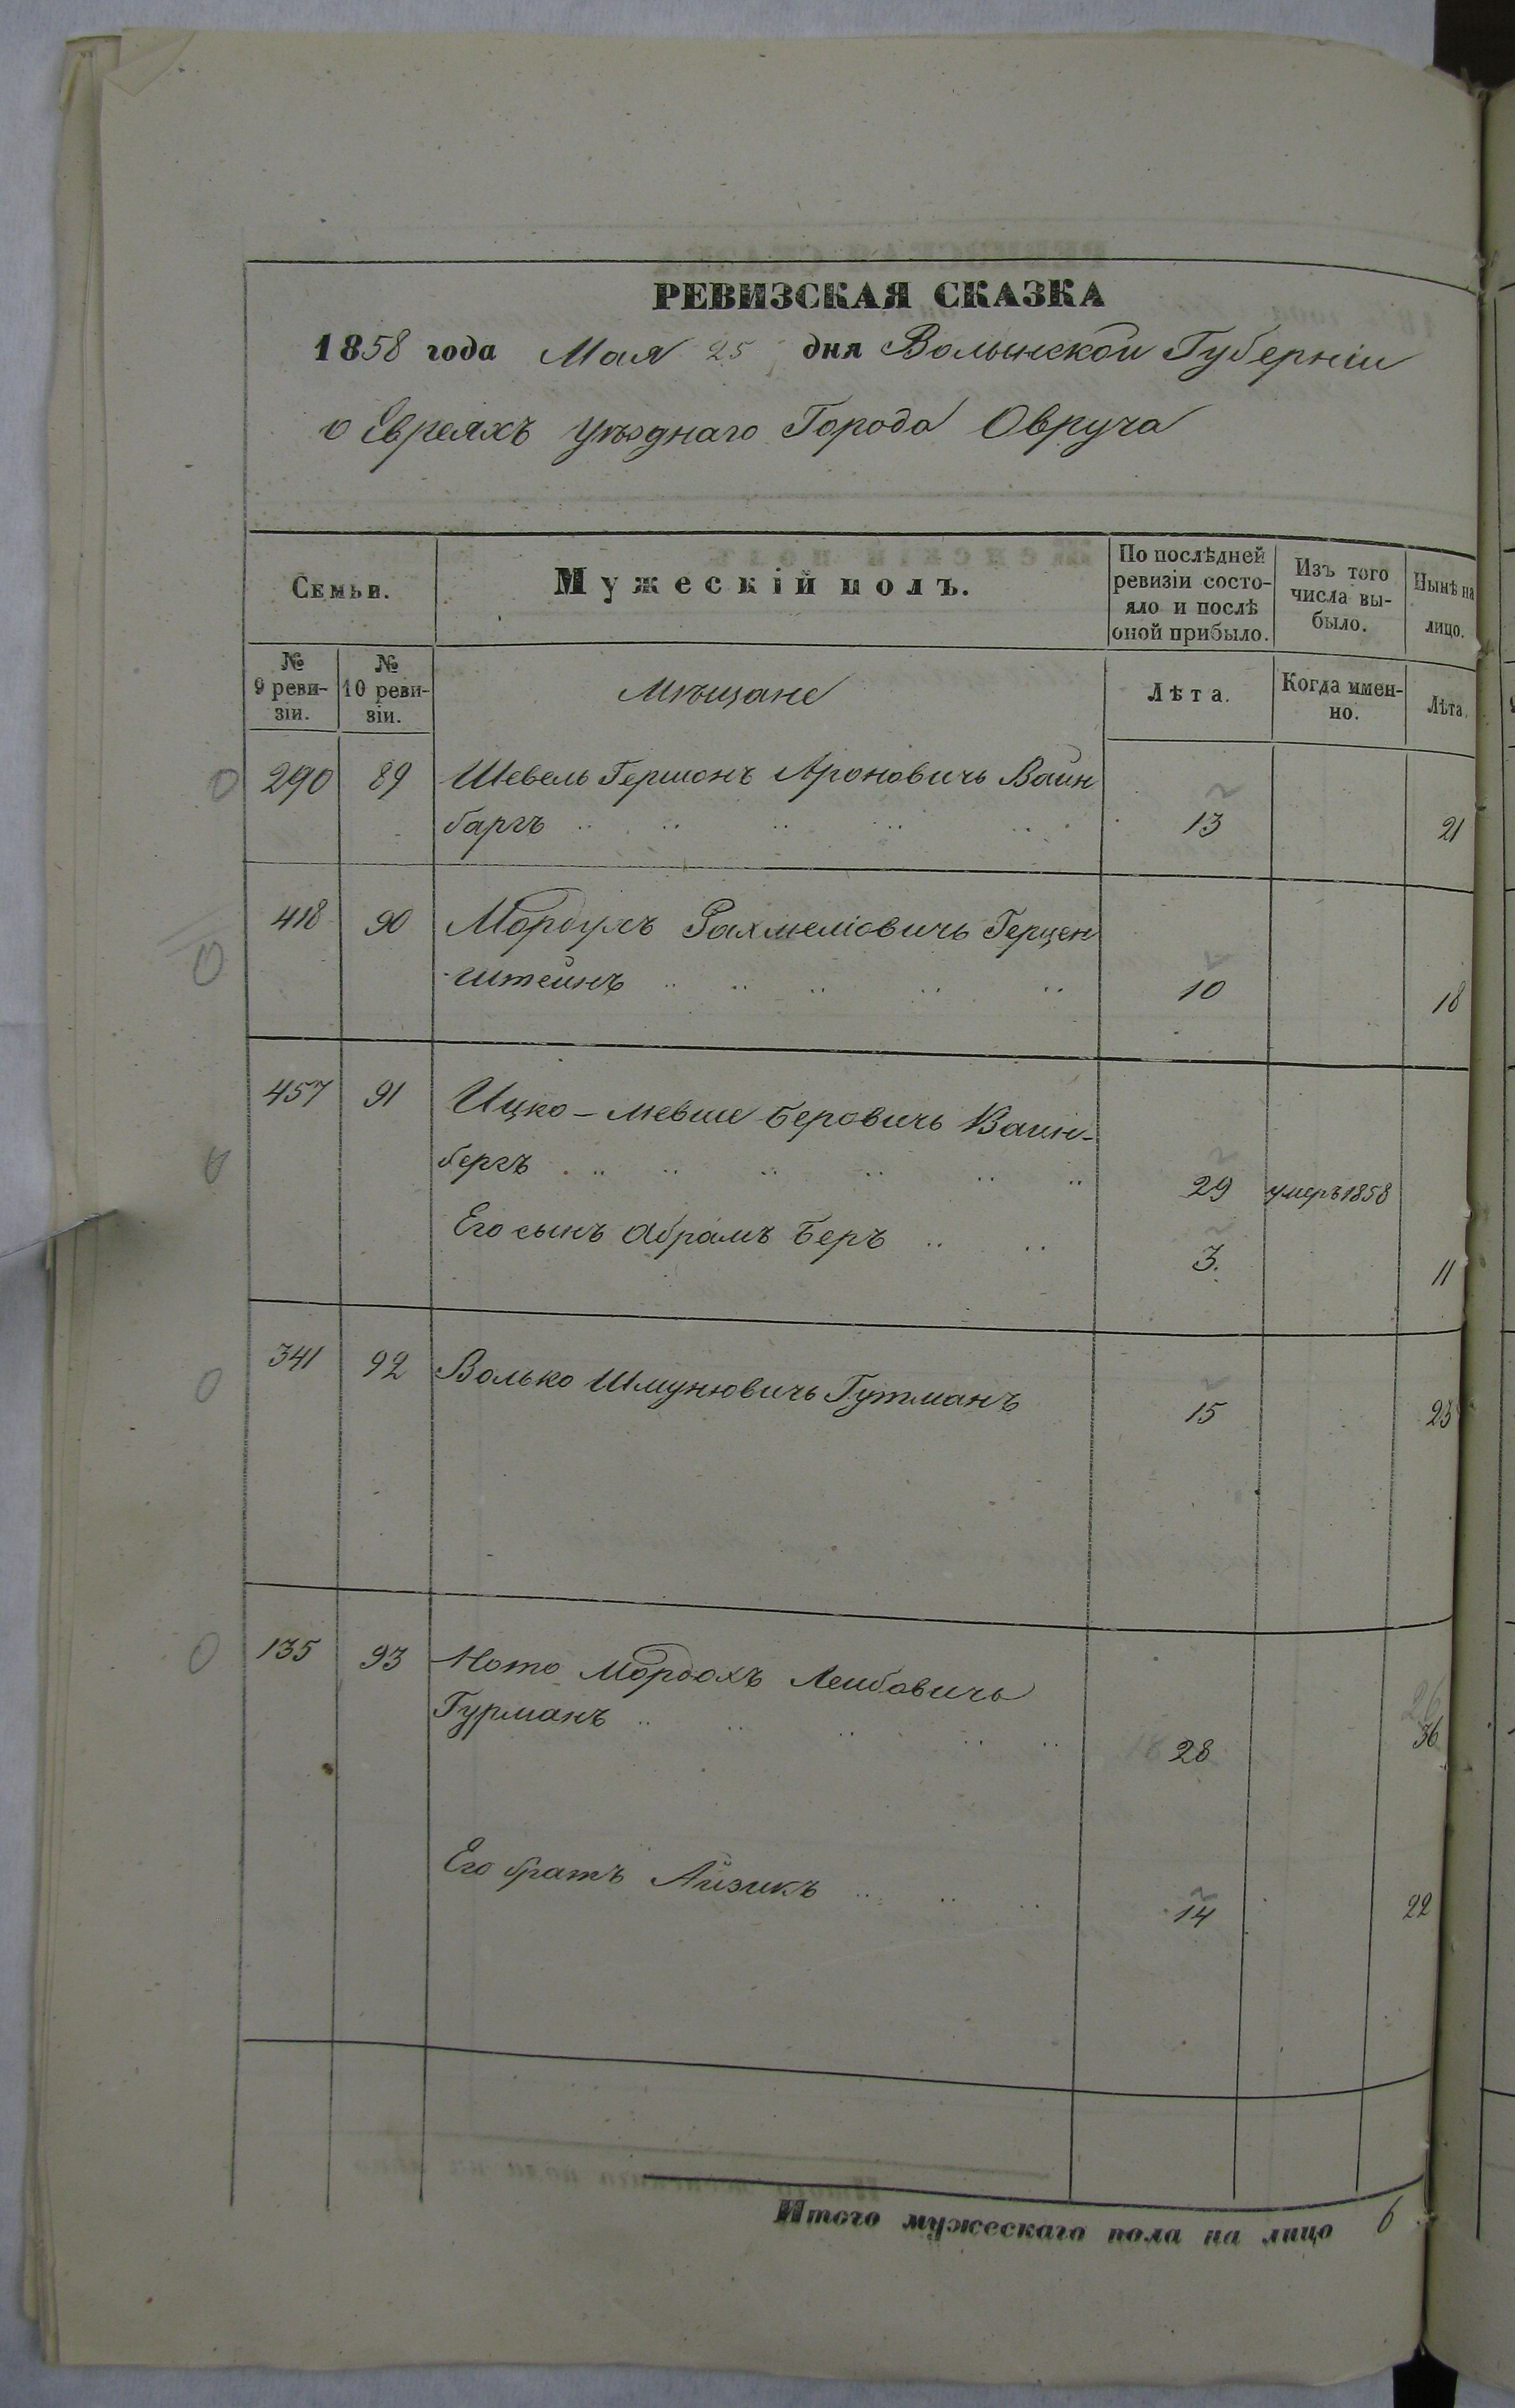 РЕВИЗСКАЯ СКАЗКА
1858 года Мая 25 дня Волынской Губерніи
о Евреяхъ уѣзднаго Города Овруча
Семьи. Мужескій полъ. По послѣдней ревизіи состо-яло и послѣ оной прибыло. Изъ того числа вы-было. Нынѣ на лицо.
№ 9 реви-зіи. № 10 реви-зіи. Мѣщане Лѣта. Когда имен-но. Лѣта.
290 89 Шевель Гершонъ Ароновичь Вайн
баргъ 13 21
418 90 Мордухъ Рахмеліовичь Герцен
штейнъ 10 18
457 91 Ицко-Мевше Беровичь Ваин-
бергъ 29 умеръ 1858
Его сынъ Абрамъ Беръ 3. 11
341 92 Волько Шмунювичь Гутманъ 15 23
135 93 Ното Мордохъ Леибовичь
Гурманъ 28 36
Его братъ Айзикъ 14 22
Итого мужескаго пола на лицо 6